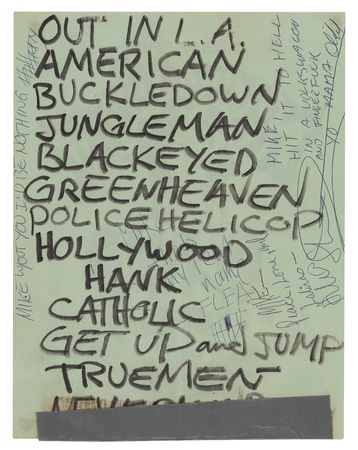 OUT IN L.A.
AMERICAN
BUCKLEDOWN
JUNGLEMAN
BLACKEYED
GREENHEAVEN
POLICE HELICOP
HOLLYWOOD
HANK
CATHOLIC
GET UP and JUMP
TRUEMEN
MIKE W/OUT YOU I'D BE NOTHING
MIKE HIT IT TO HELL
IN A VOLKSWAGEN
AND FINGERFUCK
YO MAMA
MIKE-